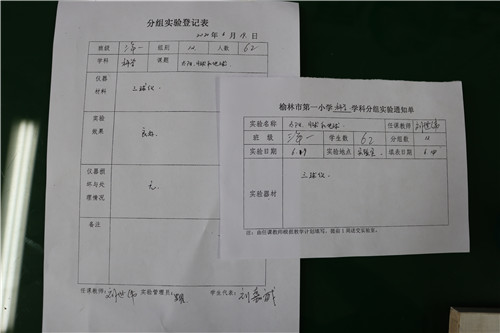 分组实验登记表
2020年6月19日
班级 三年一 组别 12 人数 62
学科 科学 课题 太阳、月球和地球
仪器材料 三球仪
实验效果 良好
仪器损坏与处理情况 无
备注
任课教师: 实验管理员: 学生代表:
榆林市第一小学 科学 学科分组实验通知单
实验名称 太阳、月球和地球. 任课教师
班级 三年一 学生数 62 分组数 12
实验日期 6.19 实验地点 实验室 填表日期 6.18
实验器材 三球仪.
注:由任课教师根据教学计划填写,提前1周送交实验室。